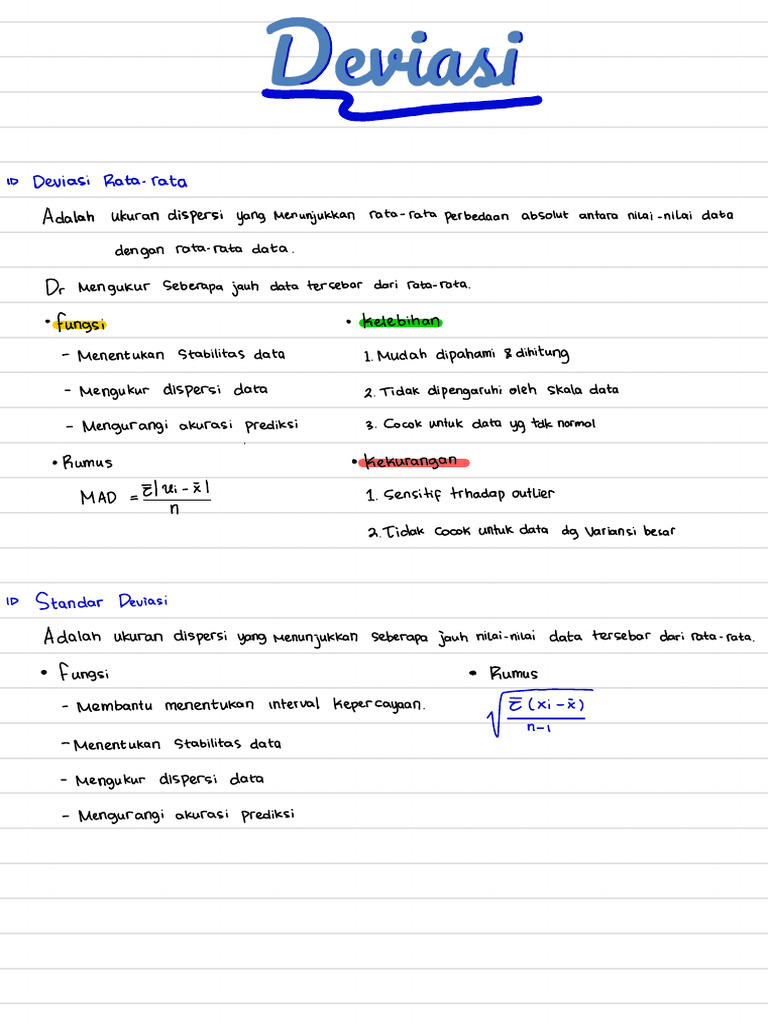 Deviasi
1D Deviasi Rata-rata
Adalah ukuran dispersi yang menunjukkan rata-rata perbedaan absolut antara nilai-nilai data
dengan rata-rata data.
Dr Mengukur Seberapa jauh data tersebar dari rata-rata.
• fungsi
- Menentukan Stabilitas data
- Mengukur dispersi data
- Mengurangi akurasi prediksi
• Rumus
MAD = Σ|xi - x̄|
n
• Kelebihan
1. Mudah dipahami & dihitung
2. Tidak dipengaruhi oleh skala data
3. Cocok untuk data yg tdk normal
• Kekurangan
1. Sensitif trhadap outlier
2. Tidak Cocok untuk data dg Variansi besar
1D Standar Deviasi
Adalah ukuran dispersi yang menunjukkan seberapa jauh nilai-nilai data tersebar dari rata-rata.
• fungsi
- Membantu menentukan interval kepercayaan.
- Menentukan Stabilitas data
- Mengukur dispersi data
- Mengurangi akurasi prediksi
• Rumus
√ Σ (xi - x̄)
n-1